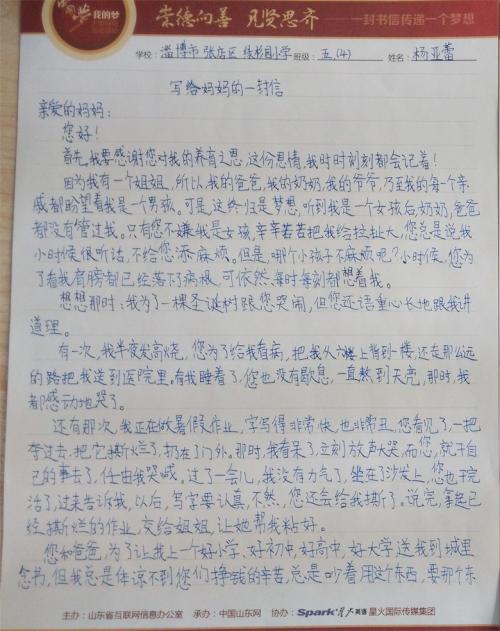 中国梦 我的梦
崇德向善 见贤思齐 ——一封书信传递一个梦想
学校:淄博市张店区绿杉园小学 班级:五.(4) 姓名:杨亚蕾
写给妈妈的一封信
亲爱的妈妈:
您好!
首先,我要感谢您对我的养育之恩,这份恩情,我时时刻刻都会记着!
因为我有一个姐姐,所以,我的爸爸,我的奶奶,我的爷爷,乃至我的每一个亲
戚都盼望着我是个男孩。可是,这终归是梦想,听到我是一个女孩后,奶奶,爸爸
都没有管过我。只有您不嫌我是女孩,辛辛苦苦把我给拉扯大,您总是说我
小时候很听话,不给您添麻烦。但是,哪个小孩子不麻烦呢?小时候,您为
了看我肩膀都已经落下了病根,可依然每时每刻都想着我。
想想那时:我为了一棵圣诞树跟您哭闹,但您还语重心长地跟我讲
道理。
有一次,我半夜发高烧,您为了给我看病,把我从六楼上背到一楼,还走那么远
的路把我送到医院里。有我睡着了,您也没有歇息,一直熬到天亮,那时,我
都感动地哭了。
还有那次,我正在做暑假作业,字写得非常快,也非常丑,您看见了,一把
夺过去,把它撕烂了,扔在了门外。那时,我看呆了,立刻放声大哭,而您,就干自
己的事去了,任由我哭喊。过了一会儿,我没有力气了,坐在了沙发上,您也干完
活了,过来告诉我,以后,写字要认真,不然,您还会给我撕了。说完,拿起已
经撕烂的作业,交给姐姐,让她帮我粘好。
您和爸爸,为了让我上一个好小学,好初中,好高中,好大学,送我到城里
念书,但我总是体谅不到您们挣钱的辛苦,总是吵着用这个东西,要那个东
主办:山东省互联网信息办公室 承办:中国山东网 协办:Spark 星火英语 星火国际传媒集团